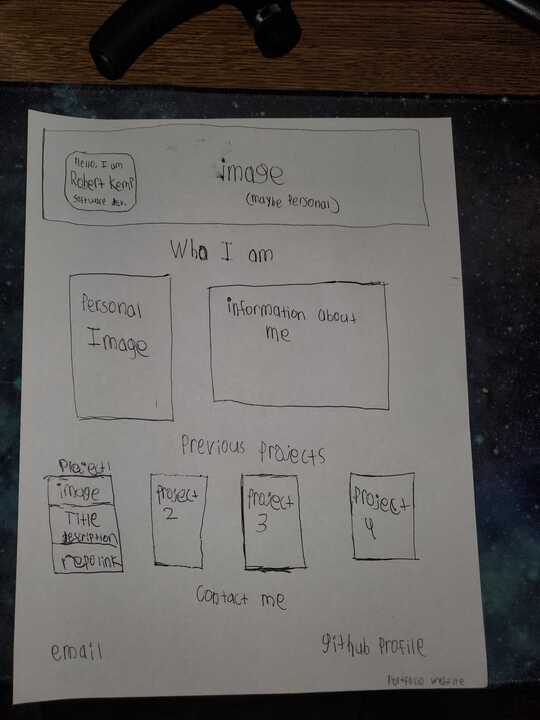 Hello, I am
Robert Kemp
Software dev.
image
(maybe Personal)
Who I am
Personal
Image
information about
me
Previous Projects
Project 1
image
Title
description
repo link
Project
2
Project
3
Project
4
Contact me
email
github Profile
Portfolio website